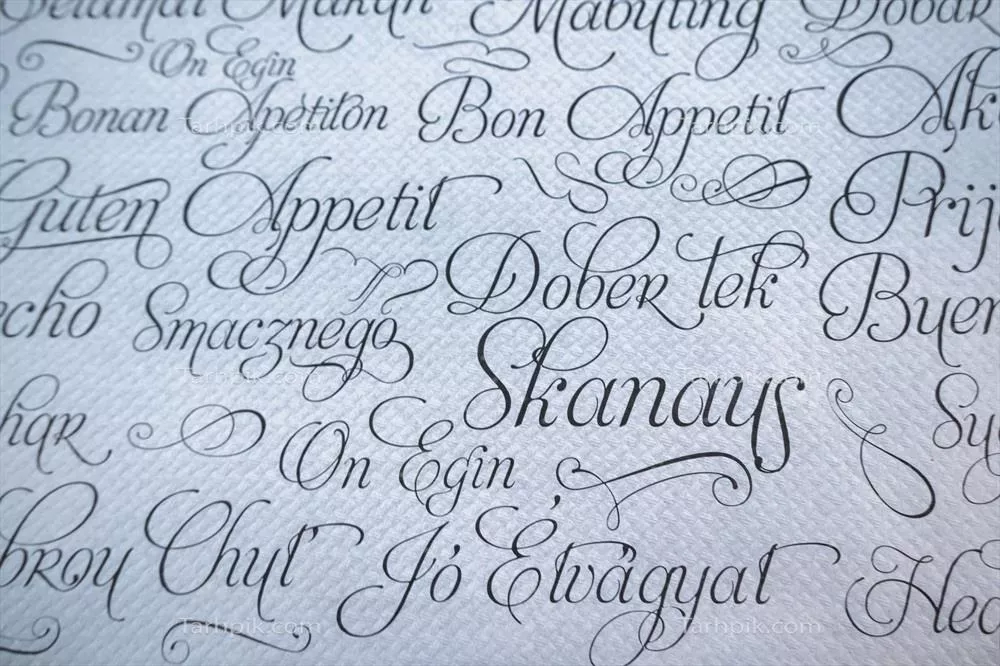 Selamat Makan Mabuting Dobar
On Egin
Bonan Apetiton Bon Appetit
Guten Appetit Prij
Dober tek
echo Smacznego Buen
Skanaus
On Egin
broy Chut' Jó Étvágyat
Tarhpik.com Tarhpik.com
Tarhpik.com Tarhpik.com
Tarhpik.com Tarhpik.com